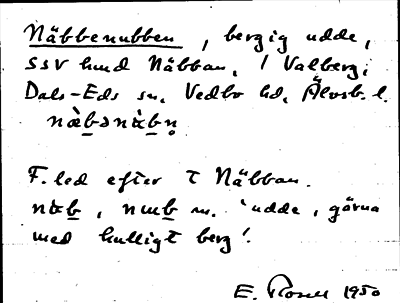 Näbbenubben, bergig udde,
SSV hmd Näbban, / Valberg;
Dals-Eds sn, Vedbo hd, Älvsb. l.
næ̀bənʉ̀bn̥
F. led efter T Näbban.
næb, nub m. 'udde, gärna
med kulligt berg'.
E. Rosell 1950